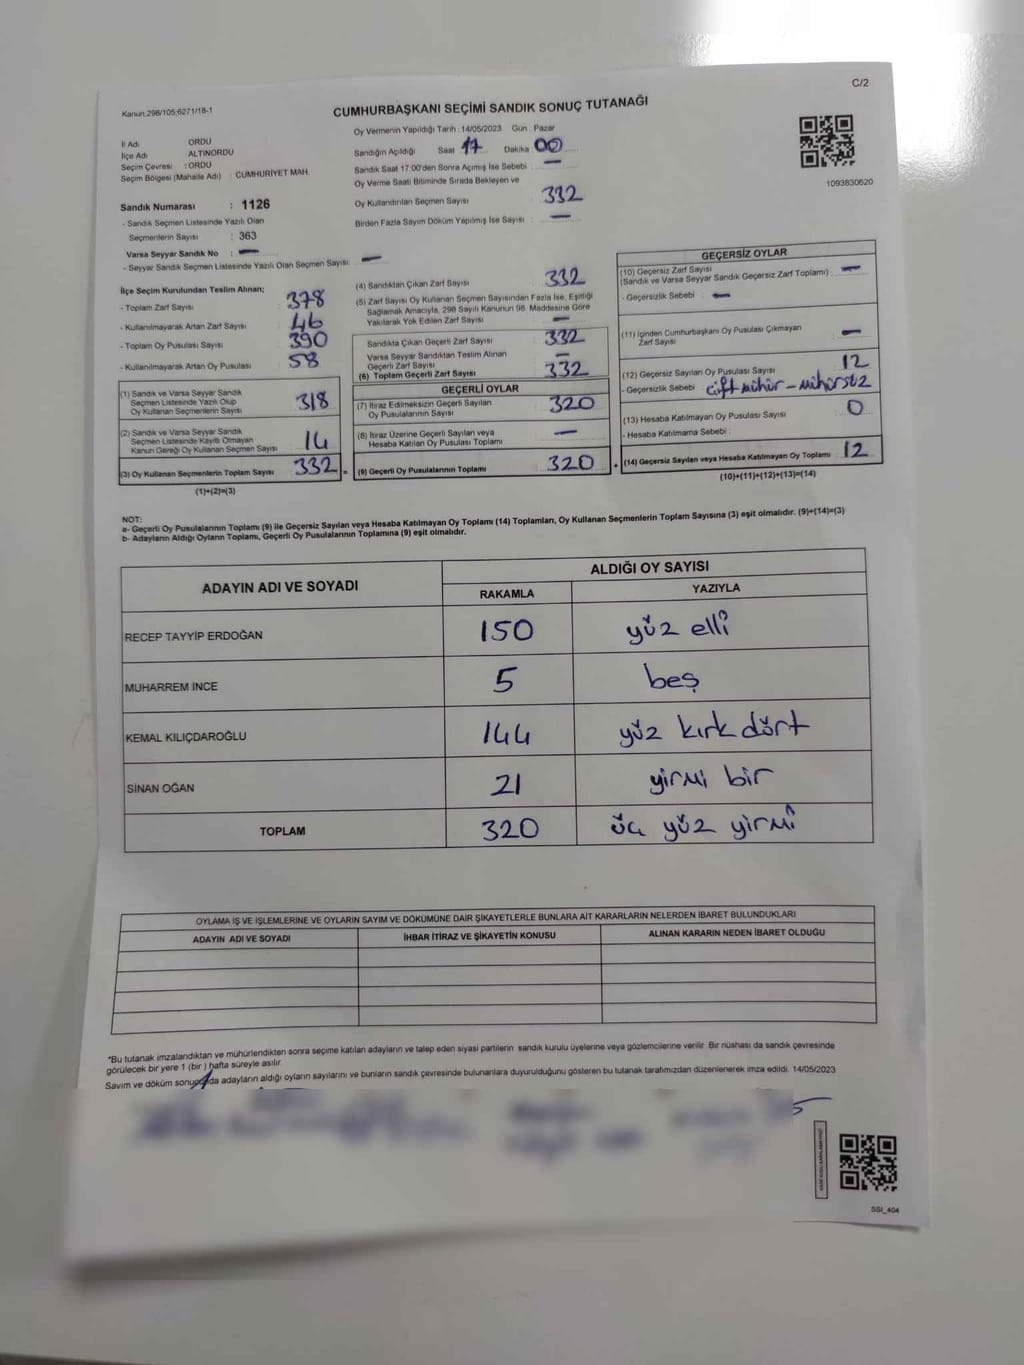 C/2
Kanun:298/105;6271/18-1
CUMHURBAŞKANI SEÇİMİ SANDIK SONUÇ TUTANAĞI
İl Adı ORDU
İlçe Adı ALTINORDU
Seçim Çevresi : ORDU
Seçim Bölgesi (Mahalle Adı) : CUMHURİYET MAH.
Sandık Numarası : 1126
- Sandık Seçmen Listesinde Yazılı Olan
Seçmenlerin Sayısı : 363
Varsa Seyyar Sandık No : —
- Seyyar Sandık Seçmen Listesinde Yazılı Olan Seçmen Sayısı: —
Oy Vermenin Yapıldığı Tarih : 14/05/2023 Gün : Pazar
Sandığın Açıldığı Saat 17 Dakika 00
Sandık Saat 17:00'den Sonra Açılmış İse Sebebi : —
Oy Verme Saati Bitiminde Sırada Bekleyen ve
Oy Kullandırılan Seçmen Sayısı 332
Birden Fazla Sayım Döküm Yapılmış İse Sayısı : —
1093830620
İlçe Seçim Kurulundan Teslim Alınan;
- Toplam Zarf Sayısı 378
- Kullanılmayarak Artan Zarf Sayısı 46
- Toplam Oy Pusulası Sayısı 390
- Kullanılmayarak Artan Oy Pusulası 58
(1) Sandık ve Varsa Seyyar Sandık
Seçmen Listesinde Yazılı Olup
Oy Kullanan Seçmenlerin Sayısı 318
(2) Sandık ve Varsa Seyyar Sandık
Seçmen Listesinde Kayıtlı Olmayan
Kanun Gereği Oy Kullanan Seçmen Sayısı 14
(3) Oy Kullanan Seçmenlerin Toplam Sayısı 332 =
(1)+(2)=(3)
(4) Sandıktan Çıkan Zarf Sayısı 332
(5) Zarf Sayısı Oy Kullanan Seçmen Sayısından Fazla İse, Eşitliği
Sağlamak Amacıyla, 298 Sayılı Kanunun 98. Maddesine Göre
Yakılarak Yok Edilen Zarf Sayısı —
Sandıkta Çıkan Geçerli Zarf Sayısı 332
Varsa Seyyar Sandıktan Teslim Alınan
Geçerli Zarf Sayısı —
(6) Toplam Geçerli Zarf Sayısı 332
GEÇERLİ OYLAR
(7) İtiraz Edilmeksizin Geçerli Sayılan
Oy Pusulalarının Sayısı 320
(8) İtiraz Üzerine Geçerli Sayılan veya
Hesaba Katılan Oy Pusulası Toplamı —
(9) Geçerli Oy Pusulalarının Toplamı 320 +
GEÇERSİZ OYLAR
(10) Geçersiz Zarf Sayısı
(Sandık ve Varsa Seyyar Sandık Geçersiz Zarf Toplamı) : —
- Geçersizlik Sebebi : —
(11) İçinden Cumhurbaşkanı Oy Pusulası Çıkmayan
Zarf Sayısı —
(12) Geçersiz Sayılan Oy Pusulası Sayısı 12
- Geçersizlik Sebebi : çift mühür - mühürsüz
(13) Hesaba Katılmayan Oy Pusulası Sayısı 0
- Hesaba Katılmama Sebebi :
(14) Geçersiz Sayılan veya Hesaba Katılmayan Oy Toplamı 12
(10)+(11)+(12)+(13)=(14)
NOT:
a- Geçerli Oy Pusulalarının Toplamı (9) ile Geçersiz Sayılan veya Hesaba Katılmayan Oy Toplamı (14) Toplamları, Oy Kullanan Seçmenlerin Toplam Sayısına (3) eşit olmalıdır. (9)+(14)=(3)
b- Adayların Aldığı Oyların Toplamı, Geçerli Oy Pusulalarının Toplamına (9) eşit olmalıdır.
ADAYIN ADI VE SOYADI ALDIĞI OY SAYISI
RAKAMLA YAZIYLA
RECEP TAYYİP ERDOĞAN 150 yüz elli
MUHARREM İNCE 5 beş
KEMAL KILIÇDAROĞLU 144 yüz kırk dört
SİNAN OĞAN 21 yirmi bir
TOPLAM 320 üç yüz yirmi
OYLAMA İŞ VE İŞLEMLERİNE VE OYLARIN SAYIM VE DÖKÜMÜNE DAİR ŞİKAYETLERLE BUNLARA AİT KARARLARIN NELERDEN İBARET BULUNDUKLARI
ADAYIN ADI VE SOYADI İHBAR İTİRAZ VE ŞİKAYETİN KONUSU ALINAN KARARIN NEDEN İBARET OLDUĞU
*Bu tutanak imzalandıktan ve mühürlendikten sonra seçime katılan adayların ve talep eden siyasi partilerin sandık kurulu üyelerine veya gözlemcilerine verilir. Bir nüshası da sandık çevresinde
görülecek bir yere 1 (bir) hafta süreyle asılır.
Sayım ve döküm sonucunda adayların aldığı oyların sayılarını ve bunların sandık çevresinde bulunanlara duyurulduğunu gösteren bu tutanak tarafımızdan düzenlenerek imza edildi. 14/05/2023
SSI_404